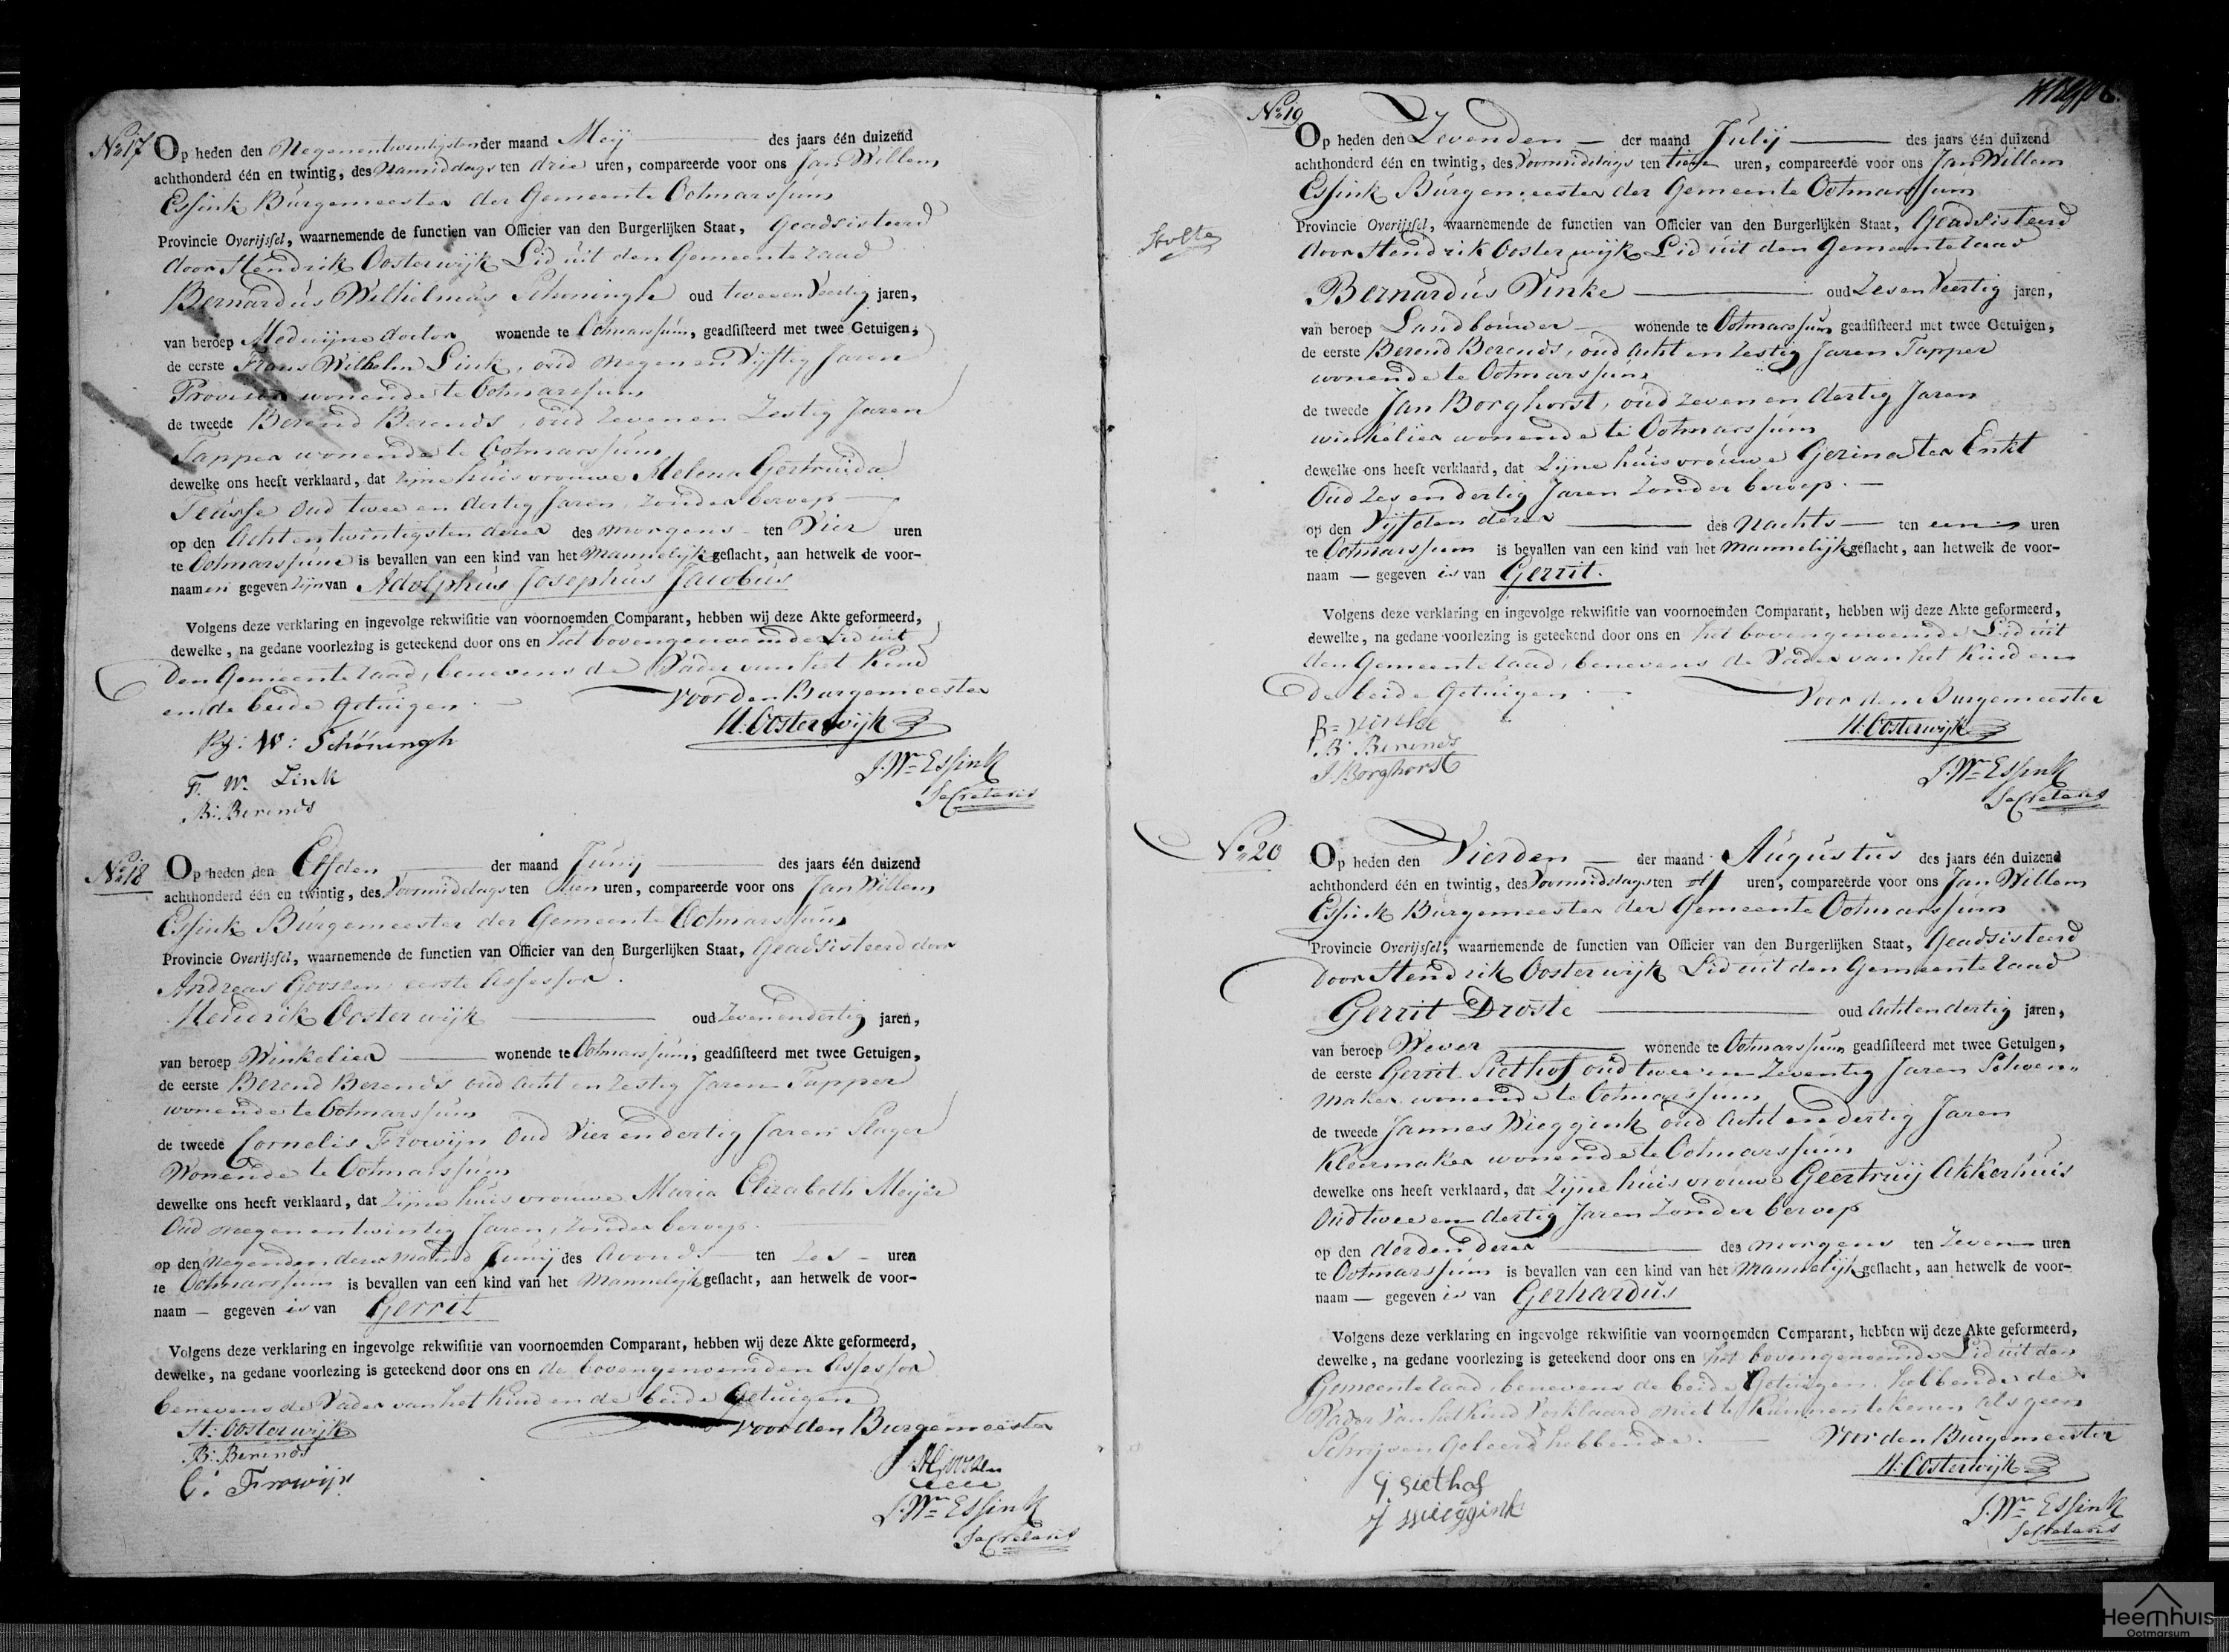 No. 17 Op heden den Negenentwintigsten der maand Meij des jaars één duizend
achthonderd één en twintig, des Namiddags ten drie uren, compareerde voor ons Jan Willem
Essink Burgemeester der Gemeente Ootmarssum
Provincie Overijssel, waarnemende de functien van Officier van den Burgerlijken Staat, Geadsisteerd
door Hendrik Oosterwijk Lid uit den Gemeente raad
Bernardus Wilhelmus Schoningh oud twee en Veertig jaren,
van beroep Medecijne doctor wonende te Ootmarssum, geadsisteerd met twee Getuigen,
de eerste Frans Wilhelm Link, oud negen en Vijftig Jaren
Provisor wonende te Ootmarssum
de tweede Berend Berends, oud Zeven en Zestig Jaren
Tapper wonende te Ootmarssum
dewelke ons heeft verklaard, dat Zijne huisvrouwe Helena Gertruida
oud twee en dertig Jaren, Zonder beroep
op den Acht en twintigsten dezer des morgens ten Vier uren
te Ootmarssum is bevallen van een kind van het Mannelijk geslacht, aan hetwelk de voor-
naamen gegeven Zijn van Adolphus Josephus Jacobus
Volgens deze verklaring en ingevolge rekwisitie van voornoemden Comparant, hebben wij deze Akte geformeerd,
dewelke, na gedane voorlezing is geteekend door ons en het bovengenoemde Lid uit
den Gemeente raad, benevens de Vader van het Kind
en de beide Getuigen.
Voor den Burgemeester
H: Oosterwijk
W: Schöningh
J. Wm Essink
F. W. Link
Secretaris
B: Berends
No. 18 Op heden den Elfden der maand Junij des jaars één duizend
achthonderd één en twintig, des Voormiddags ten tien uren, compareerde voor ons Jan Willem
Essink Burgemeester der Gemeente Ootmarssum
Provincie Overijssel, waarnemende de functien van Officier van den Burgerlijken Staat, Geadsisteerd door
Andreas Goossen eerste Assessor.
Hendrik Oosterwijk oud Zeven en dertig jaren,
van beroep Winkelier wonende te Ootmarssum, geadsisteerd met twee Getuigen,
de eerste Berend Berends oud Acht en Zestig Jaren Tapper
wonende te Ootmarssum
de tweede Cornelis Frowijn Oud Vier en dertig Jaren Slager
Wonende te Ootmarssum
dewelke ons heeft verklaard, dat Zijne huisvrouwe Maria Elizabeth Meijer
Oud negen en twintig Jaren, Zonder beroep.
op den Negenden dezer maand Junij des Avonds ten Zes uren
te Ootmarssum is bevallen van een kind van het Mannelijk geslacht, aan hetwelk de voor-
naam — gegeven is van Gerrit
Volgens deze verklaring en ingevolge rekwisitie van voornoemden Comparant, hebben wij deze Akte geformeerd,
dewelke, na gedane voorlezing is geteekend door ons en de bovengenoemden Assessor
benevens de Vader van het Kind en de beide Getuigen
H: Oosterwijk
Voor den Burgemeester
B: Berends
C: Frowijn
J. Wm Essink
Secretaris
No. 19
Op heden den Zevenden der maand Julij des jaars één duizend
achthonderd één en twintig, des Voormiddags ten tien uren, compareerde voor ons Jan Willem
Essink Burgemeester der Gemeente Ootmarssum
Provincie Overijssel, waarnemende de functien van Officier van den Burgerlijken Staat, Geadsisteerd
Stolte
door Hendrik Oosterwijk Lid uit den Gemeente raad
Bernardus Vinke oud Zes en Veertig jaren,
van beroep Landbouwer wonende te Ootmarssum geadsisteerd met twee Getuigen,
de eerste Berend Berends, oud Acht en Zestig Jaren Tapper
wonende te Ootmarssum
de tweede Jan Borghorst, oud Zeven en dertig Jaren
winkelier wonende te Ootmarssum
dewelke ons heeft verklaard, dat Zijne huisvrouwe Gezina ter Enkt
Oud Zes en dertig Jaren Zonder beroep.
op den Vijfden dezer des Nachts ten een uren
te Ootmarssum is bevallen van een kind van het Mannelijk geslacht, aan hetwelk de voor-
naam — gegeven is van Gerrit.
Volgens deze verklaring en ingevolge rekwisitie van voornoemden Comparant, hebben wij deze Akte geformeerd,
dewelke, na gedane voorlezing is geteekend door ons en het bovengenoemde Lid uit
den Gemeente raad, benevens de Vader van het Kind en
de beide Getuigen.
Voor den Burgemeester
B: Vinke
H: Oosterwijk
B: Berends
J. Borghorst
J. Wm Essink
Secretaris
No. 20 Op heden den Vierden der maand Augustus des jaars één duizend
achthonderd één en twintig, des Voormiddags ten elf uren, compareerde voor ons Jan Willem
Essink Burgemeester der Gemeente Ootmarssum
Provincie Overijssel, waarnemende de functien van Officier van den Burgerlijken Staat, Geadsisteerd
door Hendrik Oosterwijk Lid uit den Gemeente raad
Gerrit Droste oud Acht en dertig jaren,
van beroep Wever wonende te Ootmarssum geadsisteerd met twee Getuigen,
de eerste Gerrit Siethof oud twee en Zeventig Jaren Schoen-
maker wonende te Ootmarssum
de tweede Jannes Wieggink oud Acht en dertig Jaren
Kleermaker wonende te Ootmarssum
dewelke ons heeft verklaard, dat Zijne huisvrouwe Geertruij Akkerhuis
Oud twee en dertig Jaren Zonder beroep
op den derden dezer des morgens ten Zeven uren
te Ootmarssum is bevallen van een kind van het Mannelijk geslacht, aan hetwelk de voor-
naam — gegeven is van Gerhardus
Volgens deze verklaring en ingevolge rekwisitie van voornoemden Comparant, hebben wij deze Akte geformeerd,
dewelke, na gedane voorlezing is geteekend door ons en het bovengenoemde Lid uit den
Gemeente raad, benevens de beide Getuigen, hebbende de
Vader van het Kind Verklaard niet te Kunnen tekenen als geen
Schrijven Geleerd hebbende.
Voor den Burgemeester
H: Oosterwijk
G Siethof
J Wieggink
J. Wm Essink
Secretaris
Heemhuis
Ootmarsum